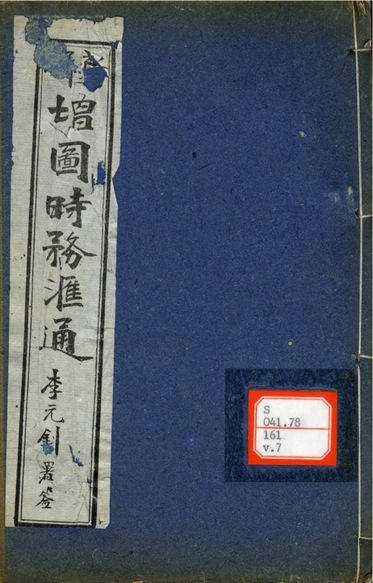 增圖時務滙通
李元釗署簽
S
041.78
161
v.7